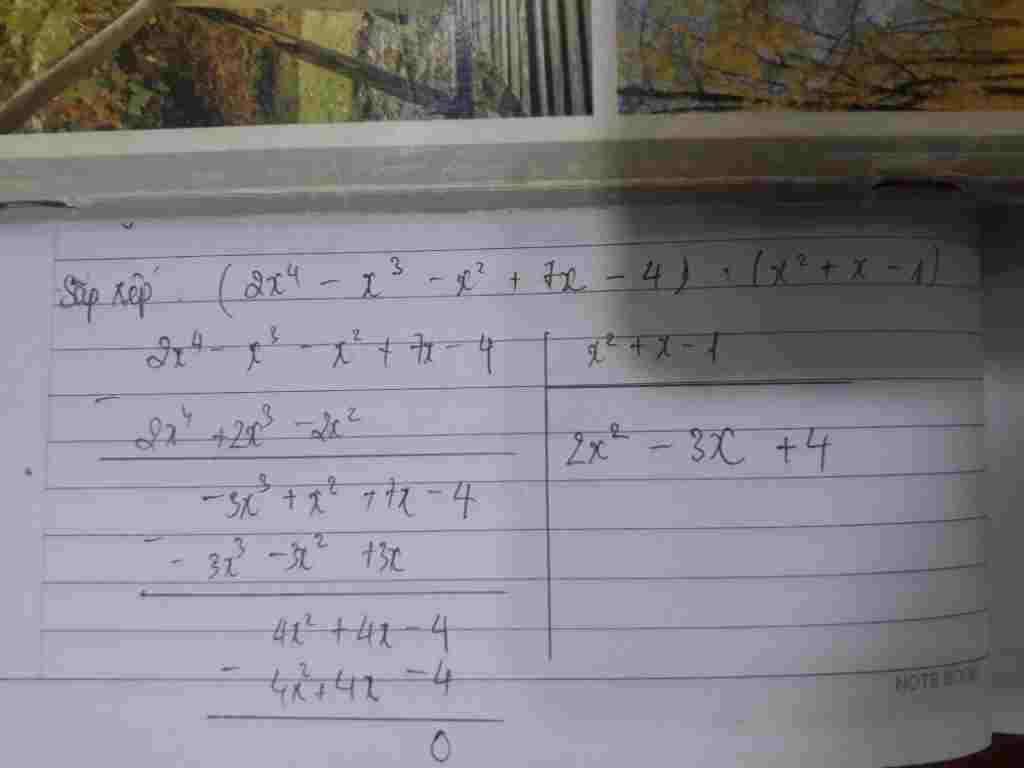 Sắp xếp : (2x⁴ - x³ - x² + 7x - 4) : (x² + x - 1)
2x⁴ - x³ - x² + 7x - 4 | x² + x - 1
-
2x⁴ + 2x³ - 2x² | 2x² - 3x + 4
-3x³ + x² + 7x - 4
-
- 3x³ - 3x² + 3x
4x² + 4x - 4
-
4x² + 4x - 4
0
NOTE BOOK